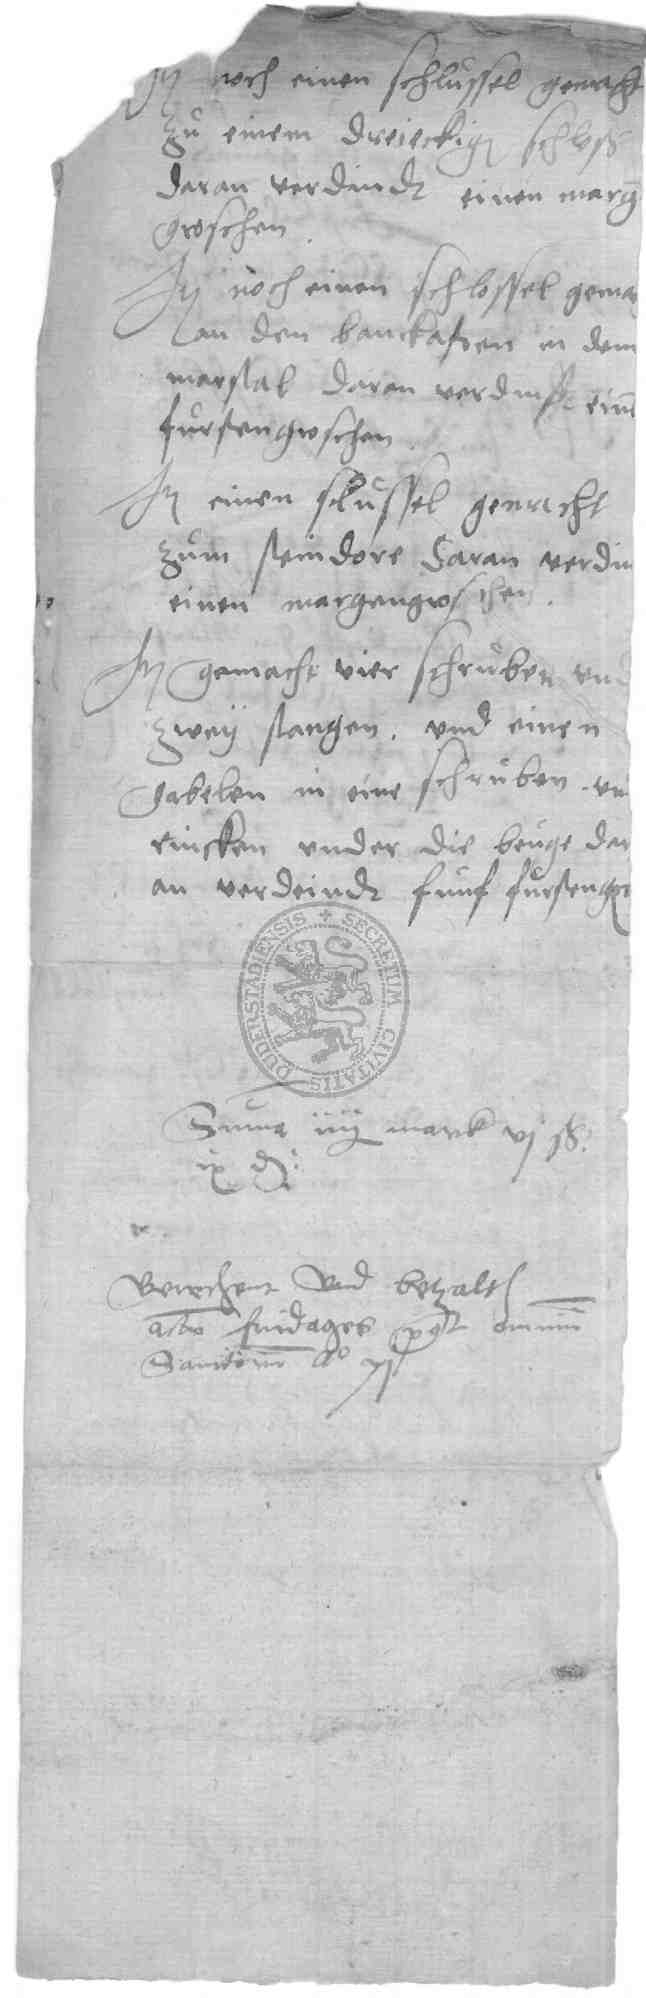 It noch einen schlussel gemacht
zu einem dreieckig schloss
daran verdindt einen marg
groschen
It noch einen schlossel gema
an den banckasten in dem
marstal daran verdinst ein
furstengroschen
It einen slussel gemacht
zum steindore daran verdin
einen margengroschen.
It gemacht vier schruben vnd
zweij stangen. vnd einen
gabelen in eine schruben vn
rincken vnder die beuge dar
an verdeindt funf furstengr
SECRETUM CIVITATIS DUDERSTADIENSIS
Suma iiij mark vj ß
ix d
Berechent vnd betzalt
acto fridages post omniu
Sanctoru Ao